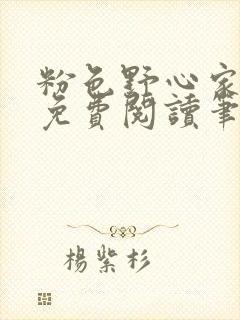 粉色野心家
免費閱讀筆
楊紫杉